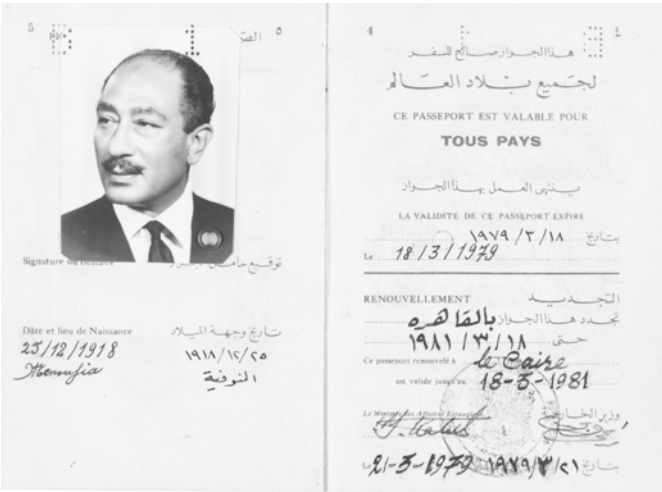 5
٥
Signature du titulaire
Dâte et lieu de Naissance
تاريخ وجهة الميلاد
25/12/1918
١٩١٨/١٢/٢٥
Menoufia
المنوفية
4
٤
هذا الجواز صالح للسفر
لجميع بلاد العالم
CE PASSEPORT EST VALABLE POUR
TOUS PAYS
ينتهى العمل بهذا الجواز
LA VALIDITE DE CE PASSEPORT EXPIRE
بتاريخ ١٩٧٩/٣/١٨
Le 18/3/1979
RENOUVELLEMENT التجديد
تجدد هذا الجواز بالقاهره
حتى ١٩٨١/٣/١٨
Ce passeport renouvelé à le Caire
est valide jusqu'au 18-3-1981
Le Ministre des Affaires Etrangères
وزير الخارجية
Le 21-3-1979 بتاريخ ١٩٧٩/٣/٢١